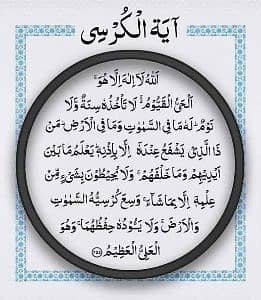 آيَةُ الْكُرْسِى
اَللّٰهُ لَآ اِلٰهَ اِلَّا هُوَ ۚ
اَلْحَىُّ الْقَيُّوْمُ ۚ لَا تَاْخُذُهٗ سِنَةٌ وَّلَا
نَوْمٌ ؕ لَهٗ مَا فِى السَّمٰوٰتِ وَمَا فِى الْاَرْضِ ؕ مَنْ
ذَا الَّذِىْ يَشْفَعُ عِنْدَهٗۤ اِلَّا بِاِذْنِهٖ ؕ يَعْلَمُ مَا بَيْنَ
اَيْدِيْهِمْ وَمَا خَلْفَهُمْ ۚ وَلَا يُحِيْطُوْنَ بِشَىْءٍ مِّنْ
عِلْمِهٖۤ اِلَّا بِمَا شَآءَ ۚ وَسِعَ كُرْسِيُّهُ السَّمٰوٰتِ
وَالْاَرْضَ ۚ وَلَا يَئُوْدُهٗ حِفْظُهُمَا ۚ وَهُوَ
الْعَلِىُّ الْعَظِيْمُ ﴿۲۵۵﴾